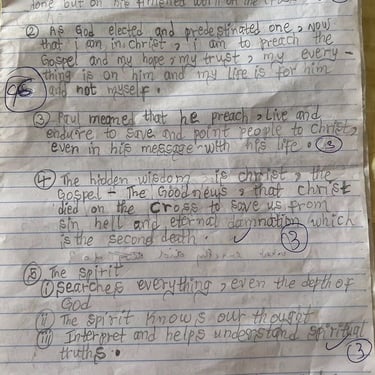 done but on his finished work on the cross
② As God elected and predestinated one, now
that i am in christ, i am to preach the
Gospel and my hope, my trust, my every-
thing is on him and my life is for him
add not myself.
③ Paul meaned that he preach, live and
endure to save and point people to christ,
even in his message with his life.
④ The hidden wisdom, is christ, the
Gospel - The Good news, that christ
died on the cross to save us from
sin hell and eternal damnation which
is the second death.
3
⑤ The Spirit
(i) searches everything, even the depth of
God
(ii) The spirit knows our thought
(iii) Interpret and helps understand spiritual
truths.
3